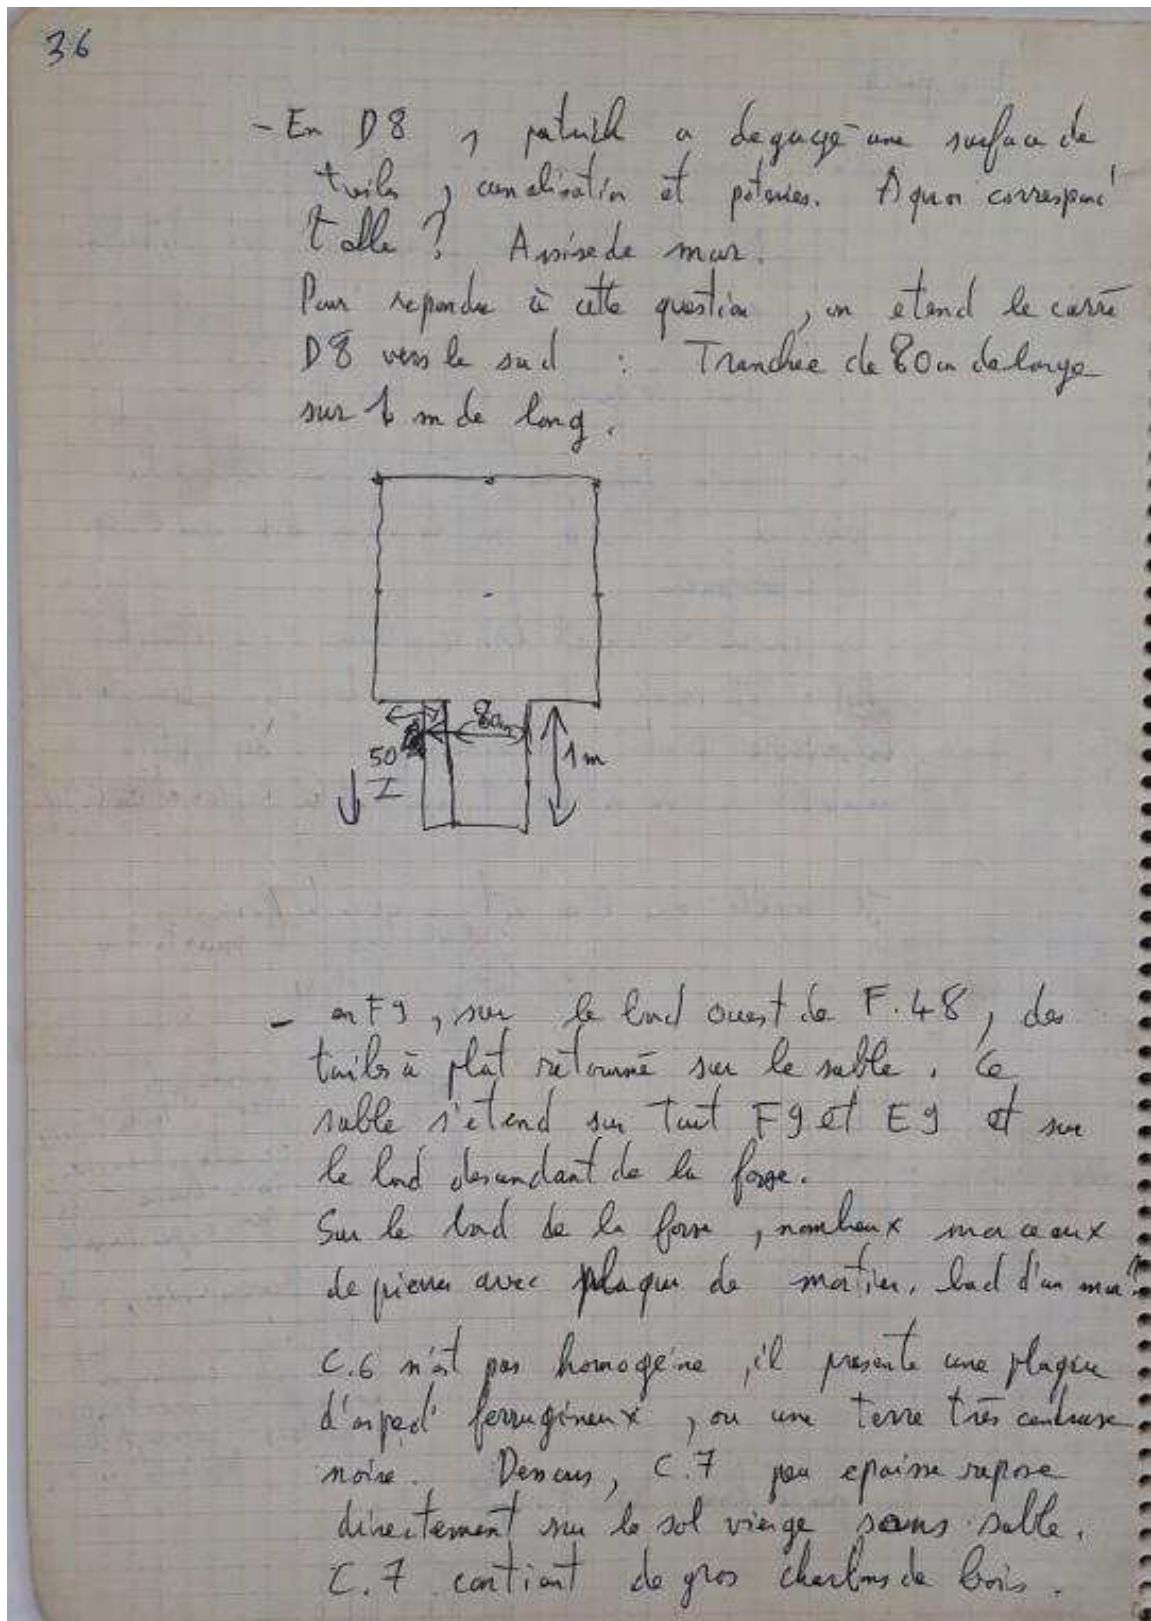 36
- En D8 , patrick a degagé une surface de
tuiles , canalisation et poteries. A quoi correspond
t elle ? Assise de mur.
Pour repondre à cette question , on etend le carré
D8 vers le sud : Tranchée de 80 cm de large
sur 1 m de long .
80cm
50
1m
- en F9 , sur le bord ouest de F.48 , des
tuiles à plat retourné sur le sable . Ce
sable s'etend sur tout F9 et E9 et sur
le bord descendant de la fosse.
Sur le bord de la fosse , nombreux morceaux
de pierres avec plaques de mortier, bord d'un mur ?
C.6 n'est pas homogène , il presente une plaque
d'aspect ferrugineux , ou une terre très cendreuse
noire . Dessous , C.7 peu epaisse repose
directement sur le sol vierge sans sable.
C.7 contient de gros charbons de bois .